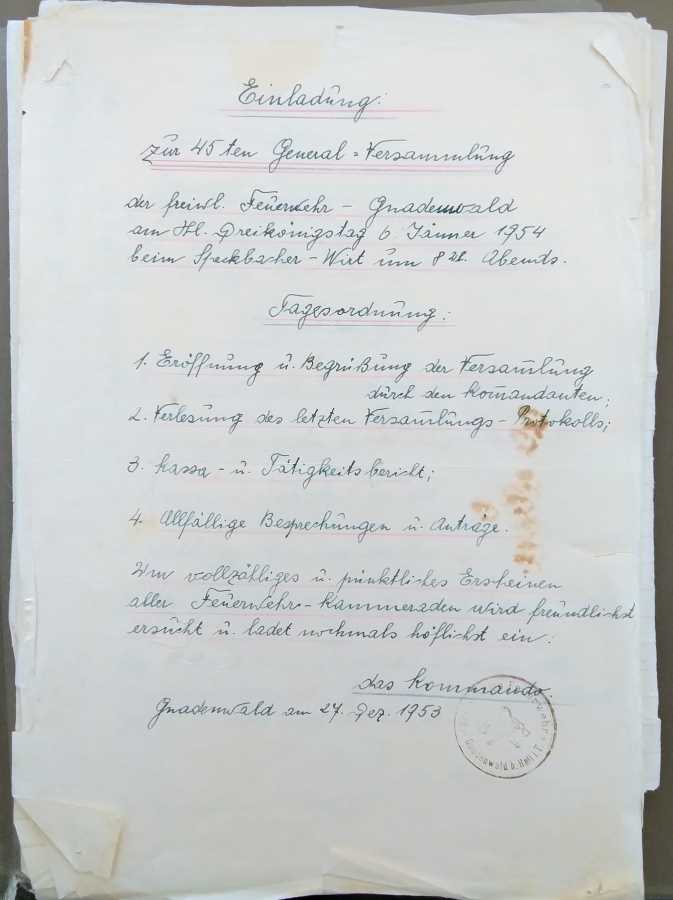 Einladung:
zur 45ten General=Versammlung
der freiwl. Feuerwehr - Gnadenwald
am Hl. Dreikönigstag 6 Jänner 1954
beim Speckbacher-Wirt um 8 Abends.
Tagesordnung:
1. Eröffnung u. Begrüßung der Versam̅lung
durch den Kom̅andanten;
2. Verlesung des letzten Versam̅lungs-Protokolls;
3. Kassa- u. Tätigkeitsbericht;
4. Allfällige Besprechungen u. Anträge.
Um vollzähliges u. pünktliches Ersheinen
aller Feuerwehr-Kammeraden wird freundlichst
ersucht u. ladet nochmals höflichst ein:
das Kommando.
Gnadenwald am 27. Dez. 1953
Gnadenwald b. Hall i. T.